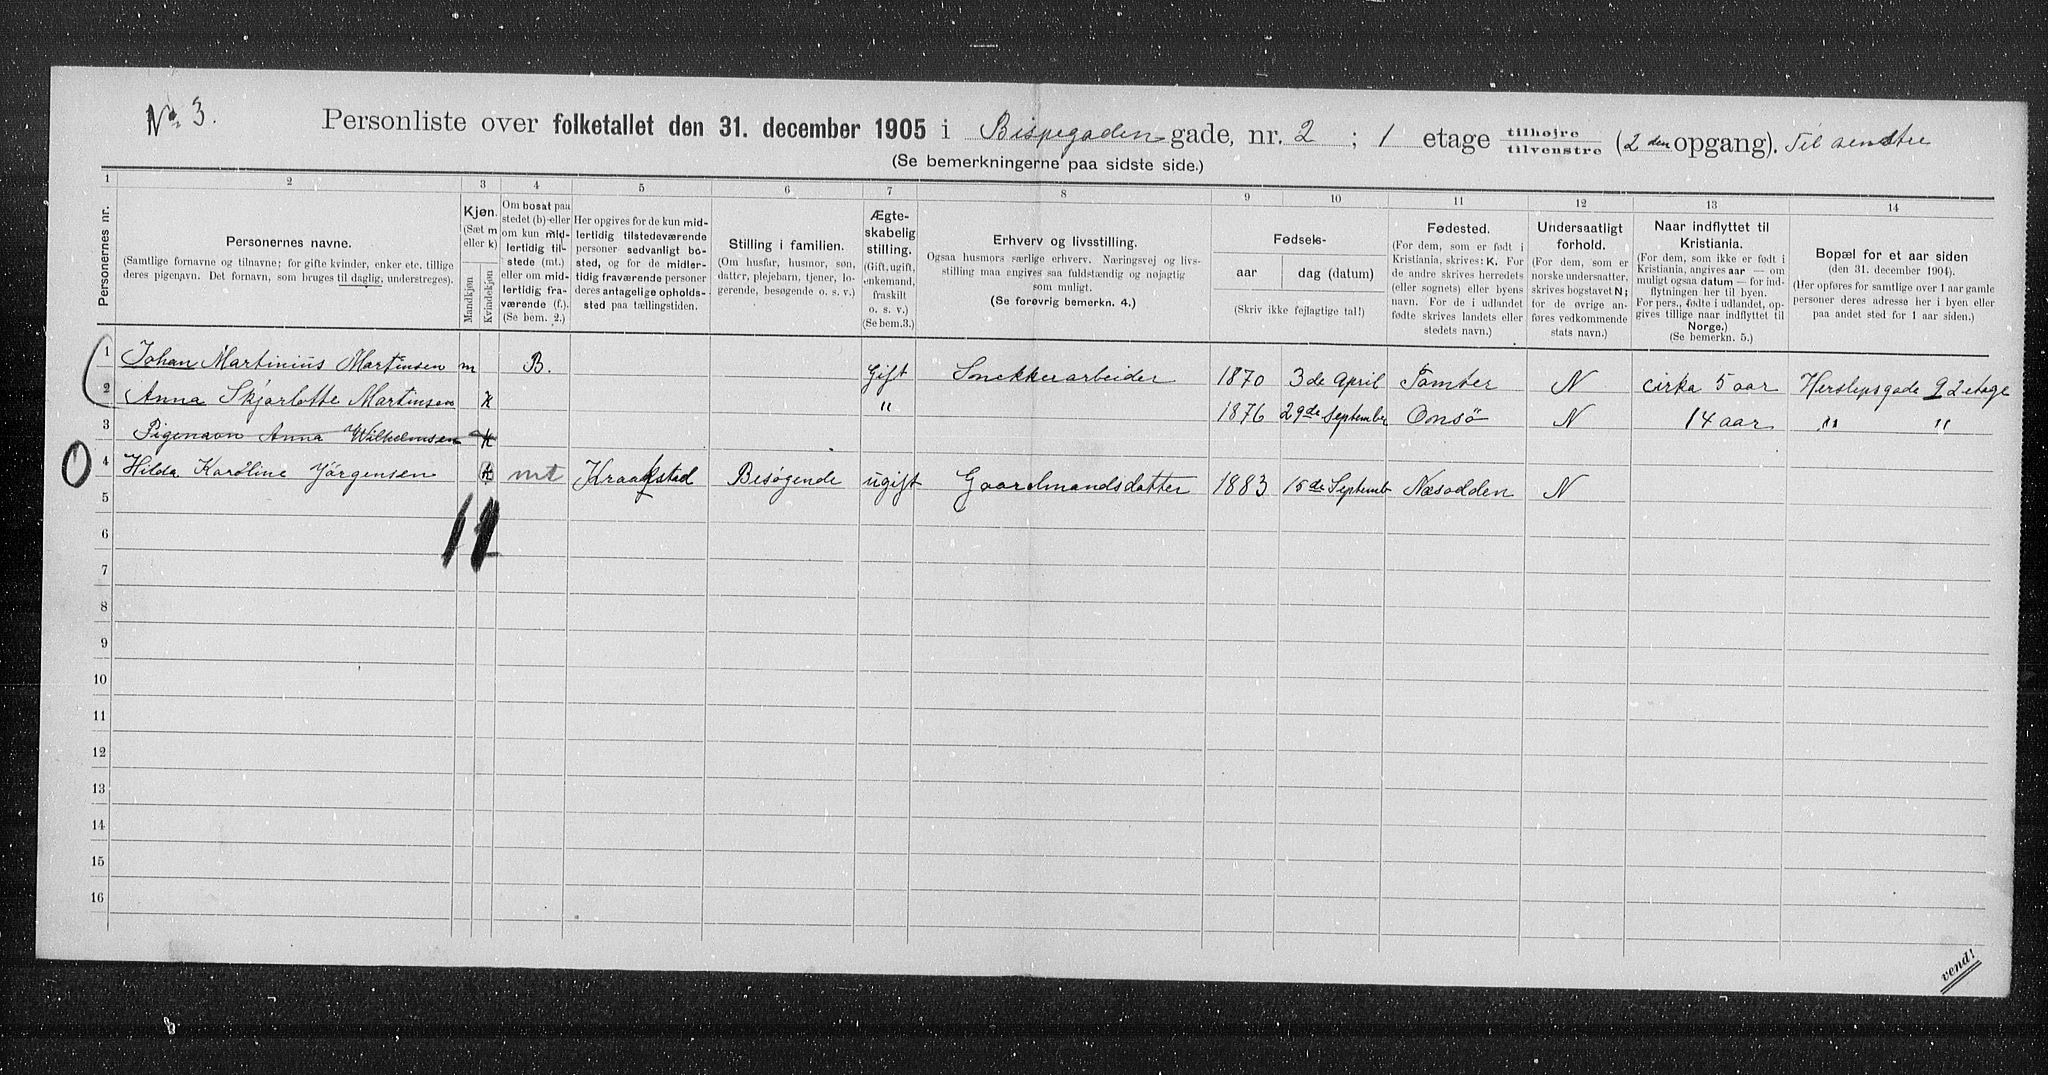 No 3. Personliste over folketallet den 31. december 1905 i Bispegaden gade, nr. 2 ; 1 etage tilhøjre tilvenstre (2 den opgang). Til venstre
(Se bemerkningerne paa sidste side.)
1 2 3 4 5 6 7 8 9 10 11 12 13 14
Personernes nr.
Personernes navne.
(Samtlige fornavne og tilnavne; for gifte kvinder, enker etc. tillige
deres pigenavn. Det fornavn, som bruges til daglig, understreges).
Kjøn.
(Sæt m
eller k)
Mandkjøn
Kvindekjøn
Om bosat paa
stedet (b) eller
om kun mid-
lertidig til-
stede (mt.)
eller om mid-
lertidig fra-
værende (f.).
(Se bem. 2.)
Her opgives for de kun mid-
lertidig tilstedeværende
personer sedvanlig bo-
sted, og for de midler-
tidig fraværende personer
deres antagelige opholds-
sted paa tællingstiden.
Stilling i familien.
(Om husfar, husmor, søn,
datter, plejebarn, tjener, lo-
gerende, besøgende o. s. v.)
Ægte-
skabelig
stilling.
(Gift, ugift,
enkemand,
fraskilt
o. s. v.)
(Se bem.3.)
Erhverv og livsstilling.
Ogsaa husmors særlige erhverv. Næringsvej og livs-
stilling maa angives saa fuldstændig og nøjagtig
som muligt.
(Se forøvrig bemerkn. 4.)
Fødsels-
aar dag (datum)
(Skriv ikke fejlagtige tal!)
Fødested.
(For dem, som er født i
Kristiania, skrives: K. For
de andre skrives herredets
(eller sognets) eller byens
navn. For de i udlandet
fødte skrives landets eller
stedets navn.)
Undersaatligt
forhold.
(For dem, som er
norske undersaatter,
skrives bogstavet N;
for de øvrige an-
føres vedkommende
stats navn.)
Naar indflyttet til
Kristiania.
(For dem, som ikke er født i
Kristiania, angives aar — om
muligt ogsaa datum — for ind-
flytningen her til byen.
For pers., fødte i udlandet, op-
gives tillige naar indflyttet til
Norge.)
(Se bemerkn. 5.)
Bopæl for et aar siden
(den 31. december 1904).
(Her opføres for samtlige over 1 aar gamle
personer deres adresse her i byen eller
paa andet sted for 1 aar siden.)
1 Johan Martinius Martinsen m B. Gift Snekkerarbeider 1870 3 de April Tomter N cirka 5 aar Herslepsgade 9 2 etage
2 Anna Skjarlotte Martinsen K " 1876 29de September Onsö N 14 aar " "
3 Pigenavn Anna Wilhelmsen K
4 Hilda Karoline Jörgensen K mt Kraakstad Besögende ugift Gaardmandsdatter 1883 15 de Septemb Næsodden N
5
6
7
8
9
10
11
12
13
14
15
16
vend!